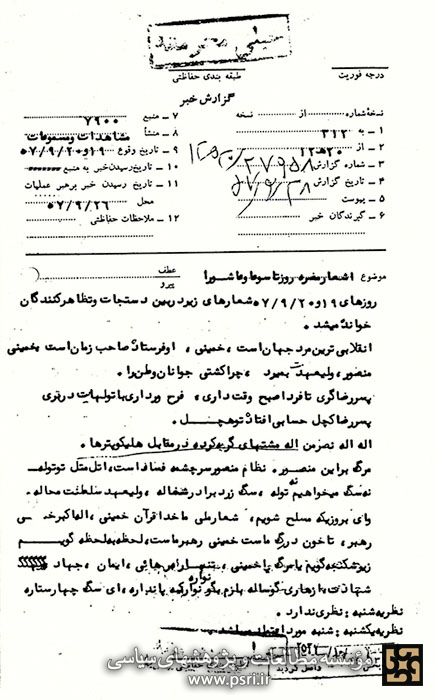 خیلی محرمانه
درجه فوریت
طبقه بندی حفاظتی
گزارش خبر
نسخه شماره از نسخه
۱ ـ به ۳۱۲
۲ ـ از ۲۰ هـ ۱۲
۳ ـ شماره گزارش ۲۷۹۵۸
۴ ـ تاریخ گزارش
۵ ـ پیوست
۶ ـ گیرندگان خبر
۷ ـ منبع ۷۹۰۰
۸ ـ منشأ مشاهدات و مسموعات
۹ ـ تاریخ وقوع ۱۹و۵۷/۹/۲۰
۱۰ ـ تاریخ رسیدن خبر به منبع
۱۱ ـ تاریخ رسیدن خبر برهبر عملیات
محل ۵۷/۹/۲۶
۱۲ ـ ملاحظات حفاظتی
موضوع اشعار مضره روز تاسوعا وعاشورا
عطف
پیرو
روزهای ۱۹و۵۷/۹/۲۰ شعارهای زیر در بین دستجات و تظاهرکنندگان
خوانده میشد .
انقلابی ترین مرد جهان است ، خمینی ، او فرستاد صاحب زمان است یخمینی
منصور ، ولیعهدت بمیرد ، چرا کشتی جوانان وطن را .
پسر رضا گری تا فردا صبح وقت داری ، فرح ورداری با تولهات دربری
پسر رضا کچل حسابی افتاد تو هچل .
اله اله نصر من اله مشتهای گره کرده در مقابل هلیکوپترها .
مرگ بر این منصور . نظام منصور سرچشمه فساد است ، اتل متل توتوله
نه سگ میخواهیم نه توله ، سگ زرد برادر شغاله ، ولیعهد سلطنت محاله .
وای بروزیکه مسلح شویم ، شعار ملی ما خدا قرآن خمینی ، اله اکبر خمینی
رهبر ، تا خون در رگ ماست خمینی رهبر ماست ، لحظه به لحظه گویم
زیر شکنجه گویم یا مرگ یا خمینی ، ایمان ، جهاد
شهادت ازهاری گوساله بازم بگو نواره نوار که پا نداره ، ای سگ چهار ستاره
نظریه شنبه : نظری ندارد .
نظریه یکشنبه : شنبه مورد اعتماد میباشد .
مؤسسه مطالعات و پژوهشهای سیاسی
www.psri.ir